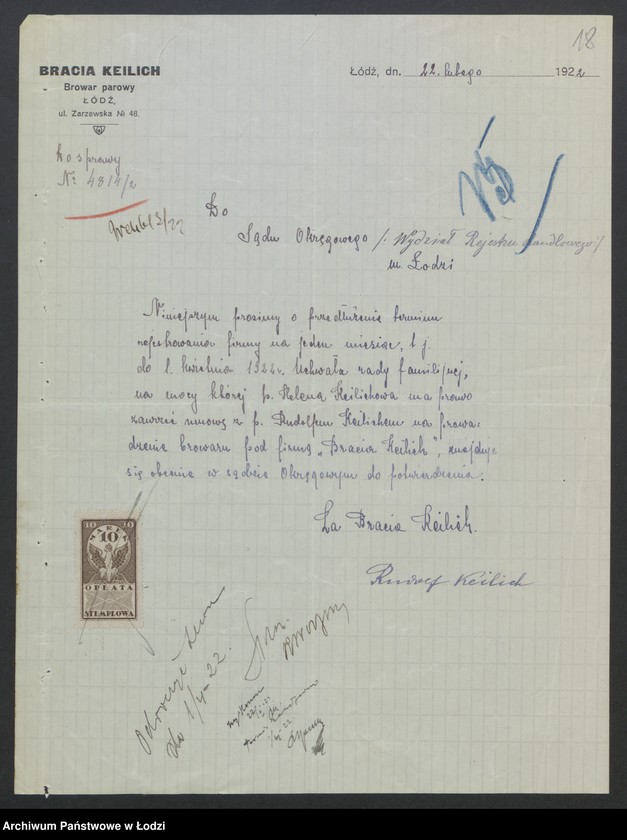 18
BRACIA KEILICH
Browar parowy
ŁÓDŹ,
ul. Zarzewska № 48.
Łódź, dn. 22. lutego 1922
Do sprawy
№ 4814/2
Do
Sądu Okręgowego /: Wydział Rejestru Handlowego :/
w Łodzi
Niniejszym prosimy o przedłużenie terminu
rejestrowania firmy na jeden miesiąc, t. j.
do 1. kwietnia 1922 r. Uchwała rady familijnej,
na mocy której p. Helena Keilichowa ma prawo
zawrzeć umowę z p. Rudolfem Keilichem na prowa-
dzenie browaru pod firmą „Bracia Keilich", znajduje
się obecnie w sądzie Okręgowym do potwierdzenia.
Za Bracia Keilich.
Rudolf Keilich
10 10
MAREK
10
OPŁATA
STEMPLOWA
do 1/4 22.
Archiwum Państwowe w Łodzi